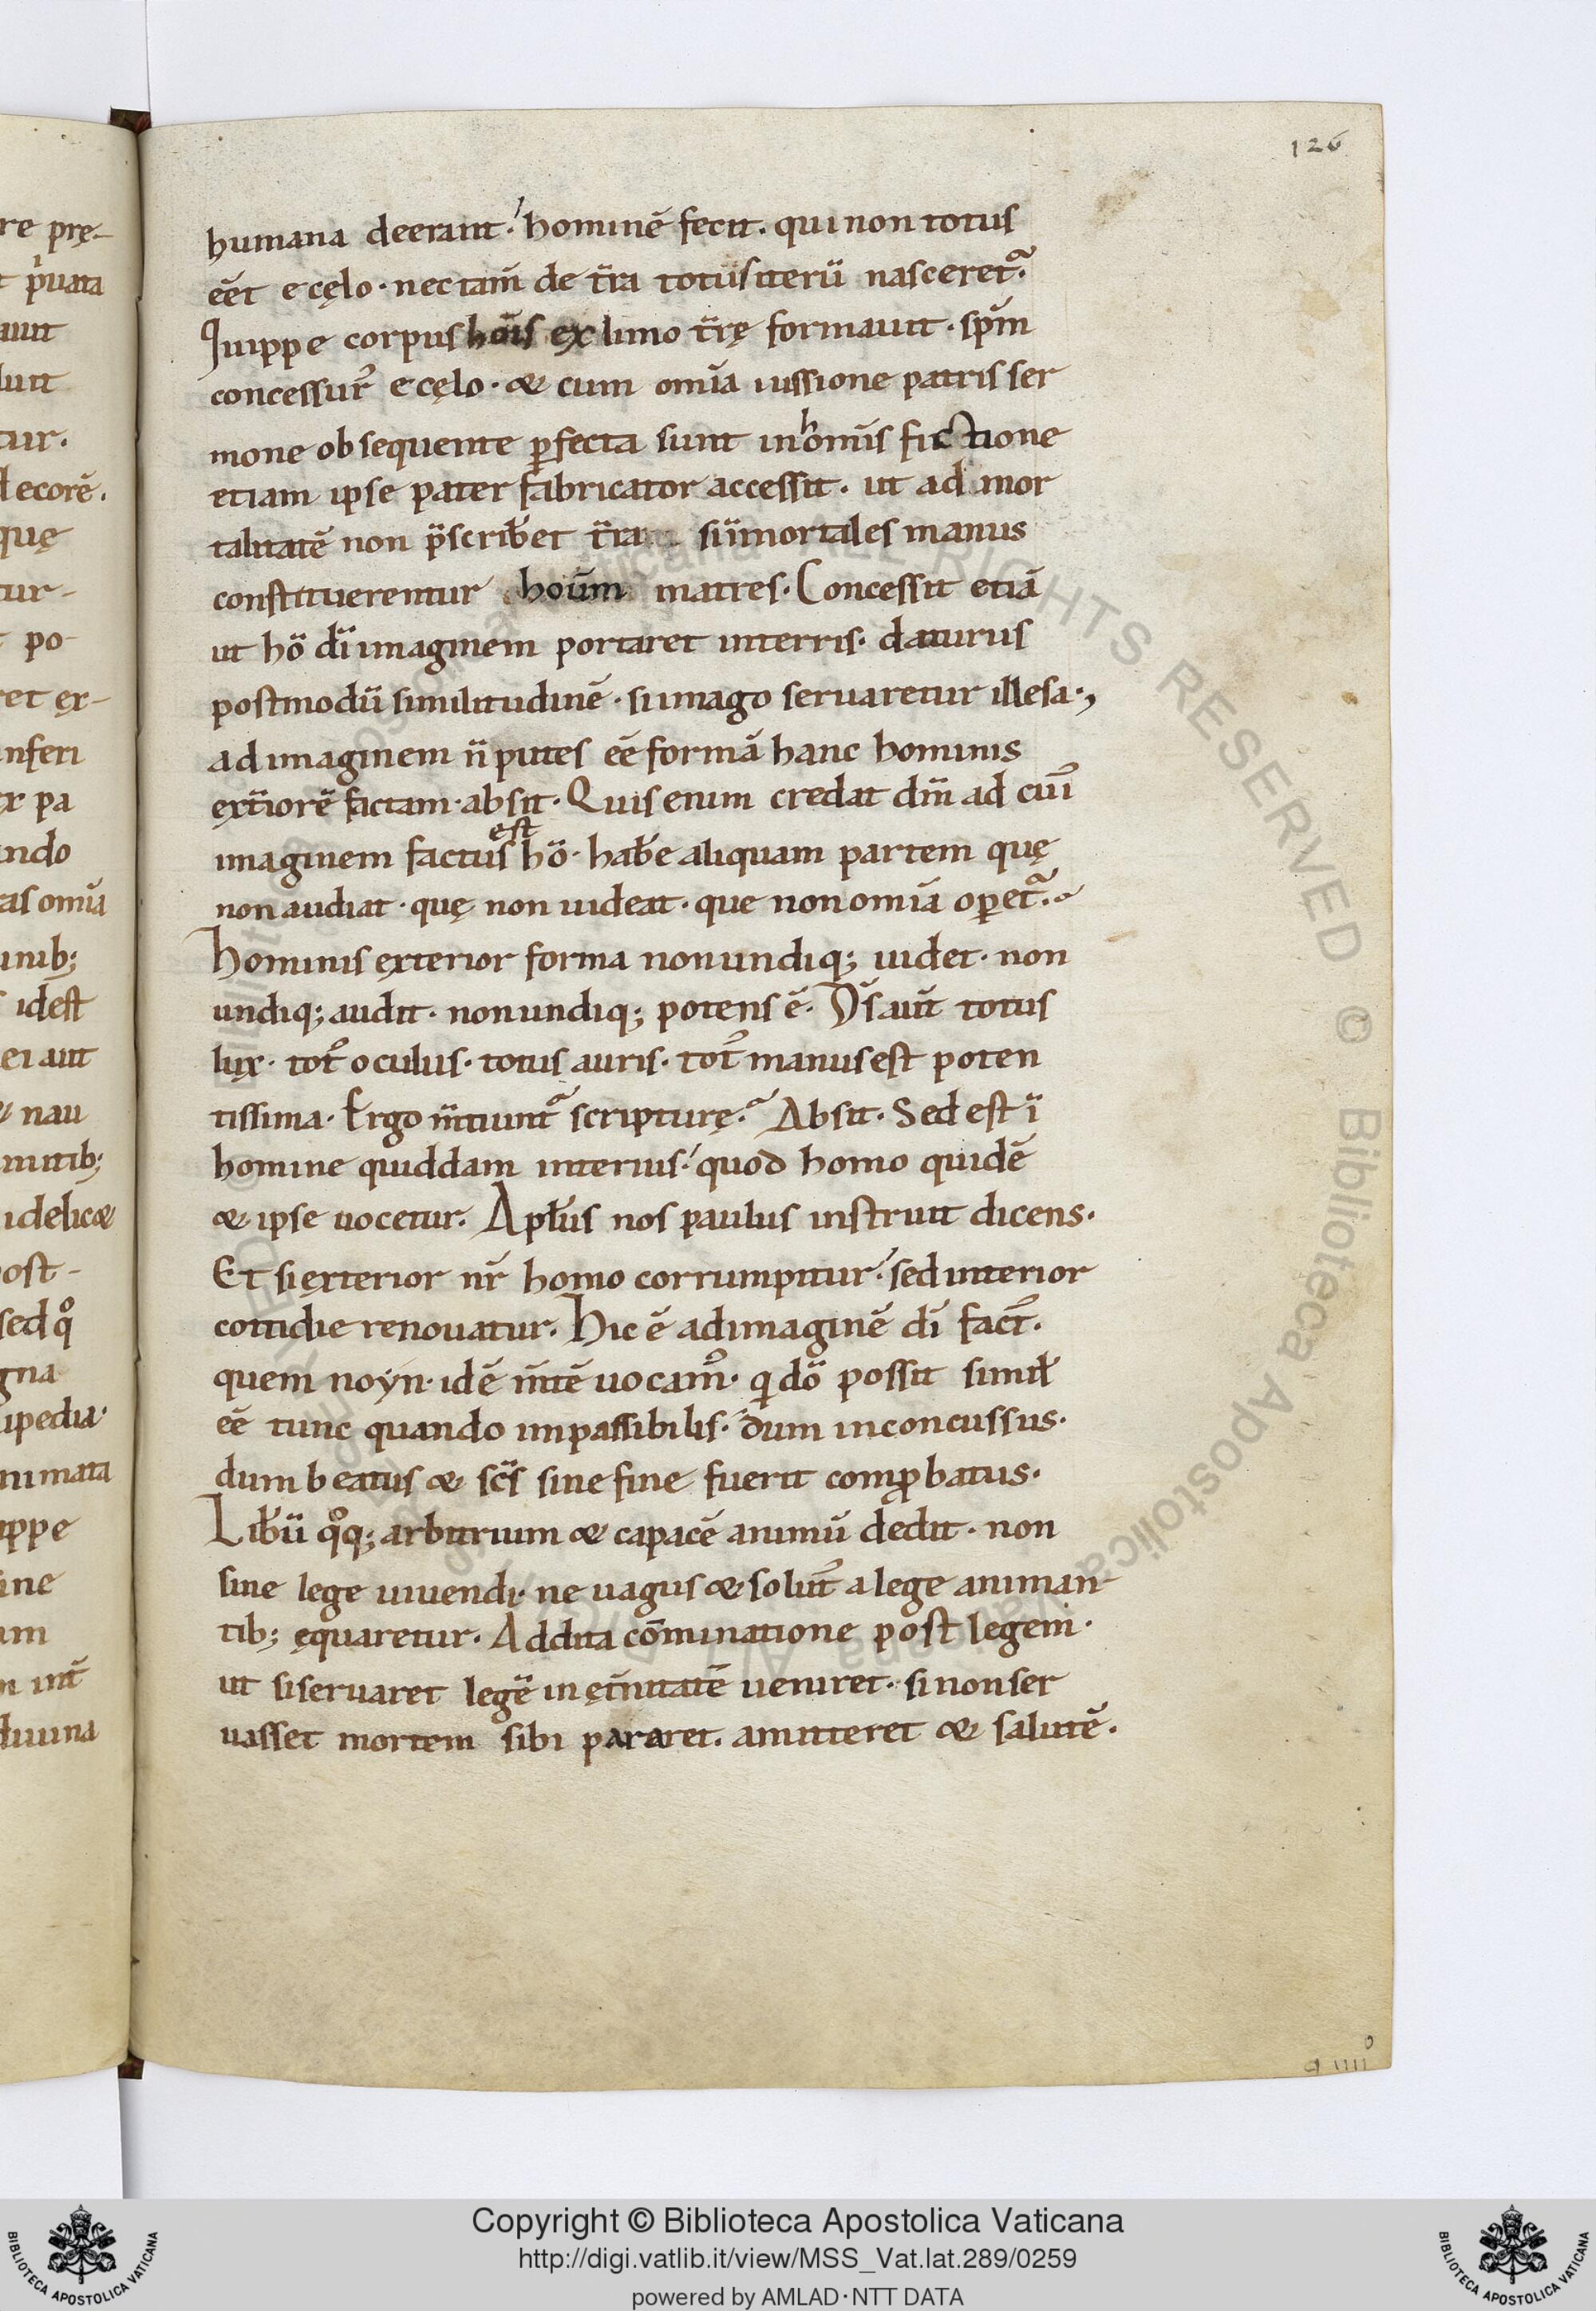 126
humana deerant. hominē fecit. qui non totus
eēt e cęlo. nec tam̄ de t̄ra totus iterū nasceret᷑.
Quippe corpus hōis ex limo t̄rę formauit. spm̄
concessur᷒ e cęlo. & cum om̄ia iussione patris ser
mone obsequente ꝑfecta sunt in hom̄is fictione
etiam ipse pater fabricator accessit. ut ad mor
talitatē non p̄scriƀet t̄ra si īmortales manus
constituerentur hoūm matres. Concessit etiā
ut hō dī imaginem portaret in terris. daturus
postmodū similitudinē. si imago seruaretur illesa.,
ad imaginem n̄ putes eē formā hanc hominis
ext̄iorē factam. absit. Quis enim credat dm̄ ad cui᷒
imaginem factus est hō. habē aliquam partem quę
non audiat. quę non uideat. que non om̄ia oꝑet᷑.
Hominis exterior forma non undiq; uidet. non
undiq; audit. non undiq; potens ē. Ds̄ aut̄ totus
lux. tot᷒ oculus. totus auris. tot᷒ manus est poten
tissima. Ergo m̄tiunt᷑ scripturę. Absit. Sed est ī
homine quiddam interius. quod homo quidē
& ipse uocetur. Apl̄us nos paulus instruit dicens.
Et si exterior nr̄ homo corrumpitur. sed interior
cottidie renouatur. Hic ē ad imaginē dī fact᷒.
quem noyn. idē m̄tē uocam᷒. q dō possit simil̄
eē tunc quando impassibilis. dum inconcussus.
dum beatus & scs̄ sine fine fuerit comꝓbatus.
Liƀū qͦq; arbitrium & capacē animū dedit. non
sine lege uiuendi. ne uagus & solut᷒ a lege animan-
tib; ęquaretur. Addita cōminatione post legem.
ut si seruaret legē in ęt̄nitatē ueniret. si non ser
uasset mortem sibi pararet. amitteret & salutē.
re prę-
uata
tur.
decorē.
quę
tur-
po-
et ex-
nferi
pa
ndo
as om̄ia
inib;
idest
ei aut
nau
mitib;
idelic&
ost-
sed qͦ
gna
ipedia.
nimata
ippe
ine
um
diuina
© Biblioteca Apostolica Vaticana
ALL RIGHTS RESERVED
Copyright © Biblioteca Apostolica Vaticana
http://digi.vatlib.it/view/MSS_Vat.lat.289/0259
powered by AMLAD·NTT DATA
BIBLIOTECA APOSTOLICA VATICANA
BIBLIOTECA APOSTOLICA VATICANA